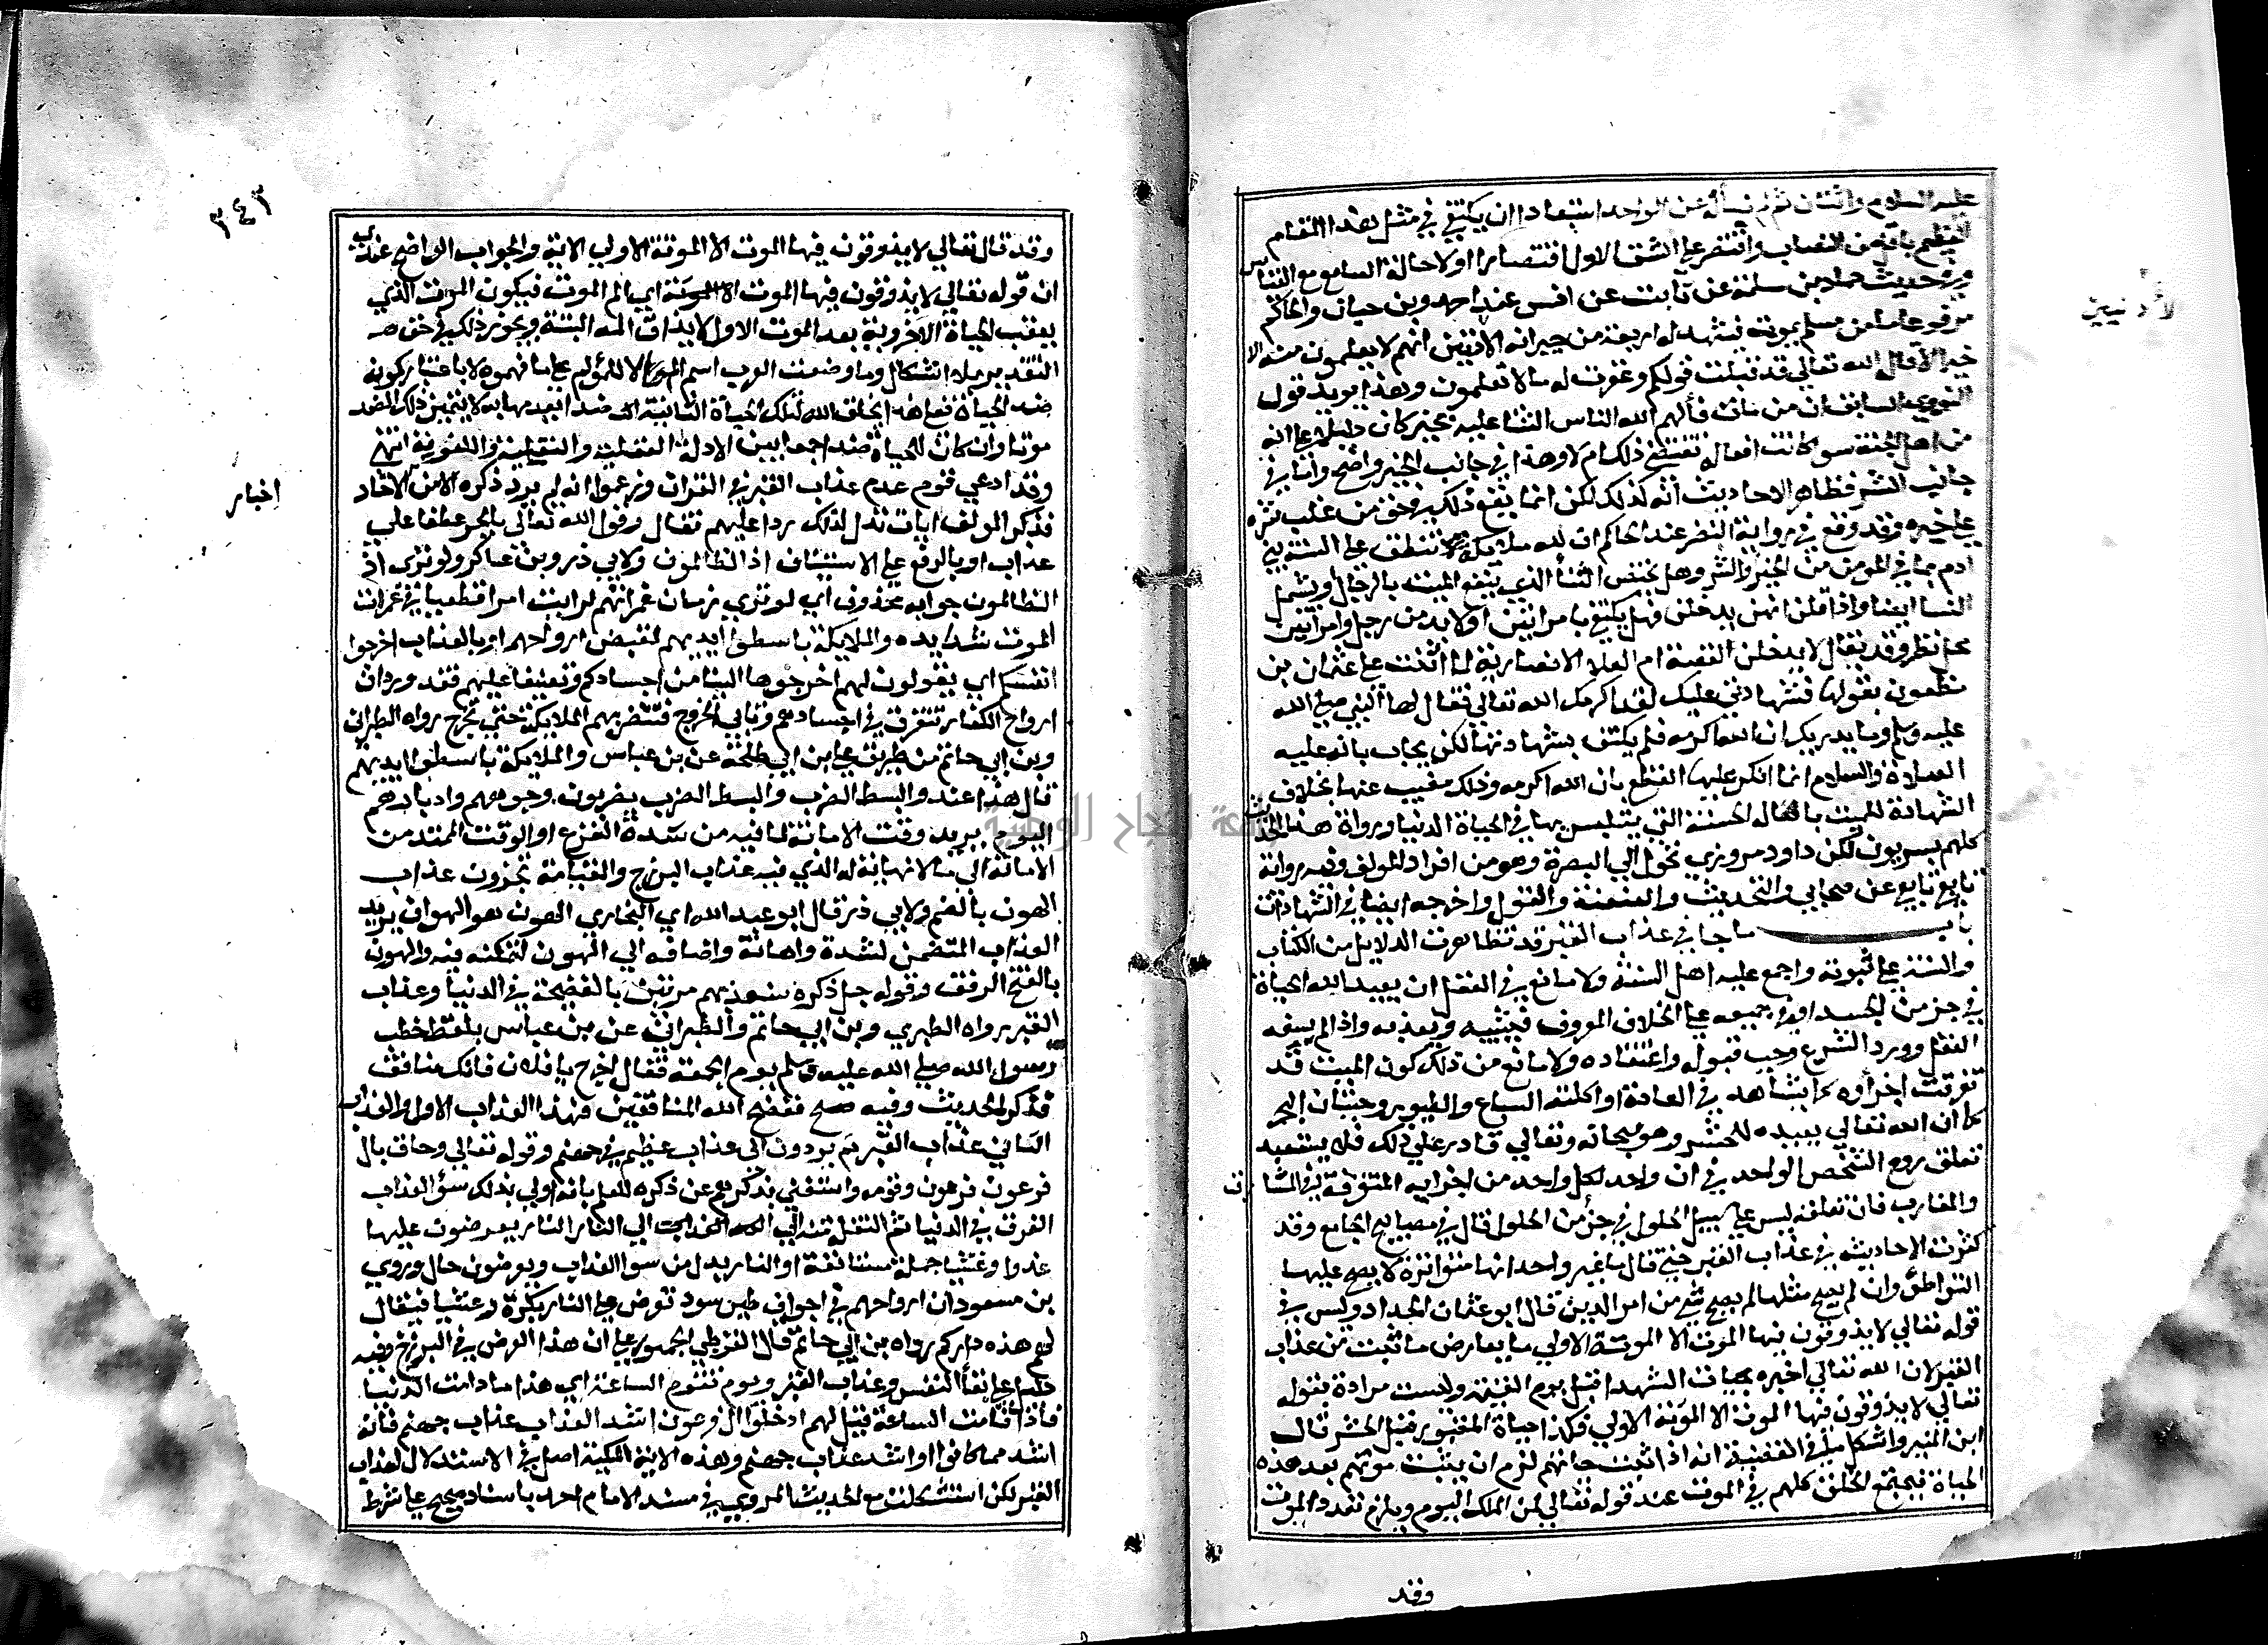 عليه السلام واثنان ثم لم نسأله عن الواحد استبعادا ان يكتفي في مثل هذا المقام
العظيم باقل من النصاب واقتصر على الشق الاول اختصارا او لاحالة السامع مع القياس
وفي حديث حماد بن سلمة عن ثابت عن انس عند احمد وبن حبان والحاكم
مرفوعا ما من مسلم يموت فيشهد له اربعة من جيرانه الادنين انهم لا يعلمون منه الا
خيرا الا قال الله تعالى قد قبلت قولكم وغفرت له ما لا تعلمون وهذا يويد قول
النووي السابق ان من مات فألهم الله الناس الثنا عليه بخير كان دليلا على انه
من اهل الجنة سوا كانت افعاله تقتضي ذلك ام لا وهذا في جانب الخير واضح واما في
جانب الشر فظاهر الاحاديث انه كذلك لكن انما يقع ذلك في حق من غلب شره
على خيره وقد وقع في رواية النضر عند الحاكم ان لله ملايكة تنطق على السنة بني
ادم بما في المومن من الخير والشر وهل يختص الثنا الذي ينفع الميت بالرجال او يشمل
النسا ايضا واذا قلنا انهن يدخلن فهل يكتفي بامراتين او لابد من رجل وامراتين
محل نظر وقد يقال لا يدخلن لقصة ام العلا الانصارية لما اثنت على عثمان بن
مظعون بقولها فشهادتي عليك لقد اكرمك الله تعالى فقال لها النبي صلى الله
عليه وسلم وما يدريك ان الله اكرمه فلم يكتف بشهادتها لكن يجاب بانه عليه
الصلاة والسلام انما انكر عليها القطع بان الله اكرمه وذلك مغيب عنها بخلاف
الشهادة للميت بافعاله الحسنة التي يتلبس بها في الحياة الدنيا ورواة هذا الحديث
كلهم بصريون لكن داود مروزي تحول الى البصرة وهو من افراد المولف وفيه رواية
تابعي عن تابعي عن صحابي والتحديث والعنعنة والقول واخرجه ايضا في الشهادات
باب ما جا في عذاب القبر قد تظاهرت الدلايل من الكتاب
والسنة على ثبوته واجمع عليه اهل السنة ولا مانع في العقل ان يعيد الله الحياة
في جز من الجسد او في جميعه على الخلاف المعروف فيثيبه ويعذبه واذا لم يمنعه
العقل وورد الشرع وجب قبوله واعتقاده ولا مانع من ذلك كون الميت قد
تفرقت اجزاوه كما يشاهد في العادة او اكلته السباع والطيور وحيتان البحر
كما ان الله تعالى يعيده للحشر وهو سبحانه وتعالى قادر على ذلك فلا يستبعد
تعلق روح الشخص الواحد في ان واحد لكل واحد من اجزايه المتفرقة في المشارق
والمغارب فان تعلقه ليس على سبيل الحلول في جز من الحلول قال في مصابيح الجامع وقد
كثرت الاحاديث في عذاب القبر حتى قال غير واحد انها متواترة لا يصح عليها
التواطؤ وان لم يصح مثلها لم يصح شي من امر الدين قال ابو عثمان الحداد وليس في
قوله تعالى لا يذوقون فيها الموت الا الموتة الاولى ما يعارض ما ثبت من عذاب
القبر لان الله تعالى اخبر بحياة الشهدا قبل يوم القيمة وليست مرادة بقوله
تعالى لا يذوقون فيها الموت الا الموتة الاولى فكذا حياة المقبور قبل الحشر قال
ابن المنير واشكل ما في القضية انه اذا ثبت حياتهم لزم ان يثبت موتهم بعد هذه
الحياة فيجتمع الخلق كلهم في الموت عند قوله تعالى لمن الملك اليوم ويلزم تعدد الموت
وقد
الادنيين
٣٤٣
وقد قال تعالى لا يذوقون فيها الموت الا الموتة الاولى الاية والجواب الواضح عندي
ان قوله تعالى لا يذوقون فيها الموت اي الم الموت فيكون الموت الذي
يعقب الحياة الاخروية بعد الموت الاول لا يذاق المه البتة ويجوز ذلك في حق
التقدير بلا اشكال وما وضعت العرب اسم الموت الا للمؤلم على ما فهموه لا باعتبار كونه
ضد الحياة فعلى هذا يخلق الله لتلك الحياة الثانية ضدا يعدمها به لا يسمى ذلك الضد
موتا وان كان للحياة ضدا جمعا بين الادلة العقلية والنقلية واللغوية انتهى
وقد ادعى قوم عدم عذاب القبر في القران وزعموا انه لم يرد ذكره الا من الاحاد
فذكر المولف ايات تدل لذلك ردا عليهم فقال وقول الله تعالى بالجر عطفا على
عذاب او بالرفع على الاستيناف اذ الظالمون ولابي ذر وبن عساكر ولو ترى اذ
الظالمون جوابه محذوف اي لو ترى زمان غمراتهم لرايت امرا فظيعا في غمرات
الموت شدايده والملايكة باسطوا ايديهم لقبض ارواحهم او بالعذاب اخرجوا
انفسكم اي يقولون لهم اخرجوها الينا من اجسادكم وتعنيفا عليهم فقد ورد ان
ارواح الكفار تتفرق في اجسادهم وتابى الخروج فتضربهم الملايكة حتى تخرج رواه الطبراني
وبن ابي حاتم من طريق علي بن ابي طلحة عن بن عباس والملايكة باسطوا ايديهم
قال هذا عند والبسط الضرب والبسط الضرب يضربون وجوههم وادبارهم
اليوم يريد وقت الاماتة لما فيه من شدة النزع او الوقت الممتد من
الاماتة الى ما لا نهاية له الذي فيه عذاب البرزخ والقيامة تجزون عذاب
الهون بالضم ولابي ذر قال ابو عبد الله اي البخاري الهون هو الهوان يريد
العذاب المتضمن لشدة واهانة واضافه الى الهون لتمكنه فيه والهون
بالفتح الرفق وقوله جل ذكره سنعذبهم مرتين بالفضيحة في الدنيا وعذاب
القبر رواه الطبري وبن ابي حاتم والطبراني عن بن عباس بلفظ خطب
رسول الله صلى الله عليه وسلم يوم الجمعة فقال اخرج يا فلان فانك منافق
فذكر الحديث وفيه ففضح الله المنافقين فهذا العذاب الاول والعذاب
الثاني عذاب القبر ثم يردون الى عذاب عظيم في جهنم وقوله تعالى وحاق بال
فرعون فرعون وقومه واستغنى بذكرهم عن ذكره للعلم بانه اولى بذلك سؤ العذاب
الغرق في الدنيا ثم النقلة منه الى النار النار يعرضون عليها
غدوا وعشيا جملة مستانفة او النار بدل من سوا العذاب ويعرضون حال وروي
بن مسعود ان ارواحهم في اجواف طير سود تعرض على النار بكرة وعشيا فيقال
لهم هذه داركم رواه بن ابي حاتم قال القرطبي الجمهور على ان هذا العرض في البرزخ وفيه
دليل على بقأ النفس وعذاب القبر ويوم تقوم الساعة اي هذا ما دامت الدنيا
فاذا قامت الساعة قيل لهم ادخلوا ال فرعون اشد العذاب عذاب جهنم فانه
اشد مما كانوا او اشد عذاب جهنم وهذه الاية المكية اصل في الاستدلال لعذاب
القبر لكن استشكلت مع الحديث المروي في مسند الامام احمد باسناد صحيح على شرط
اخبار
جامعة النجاح الوطنية